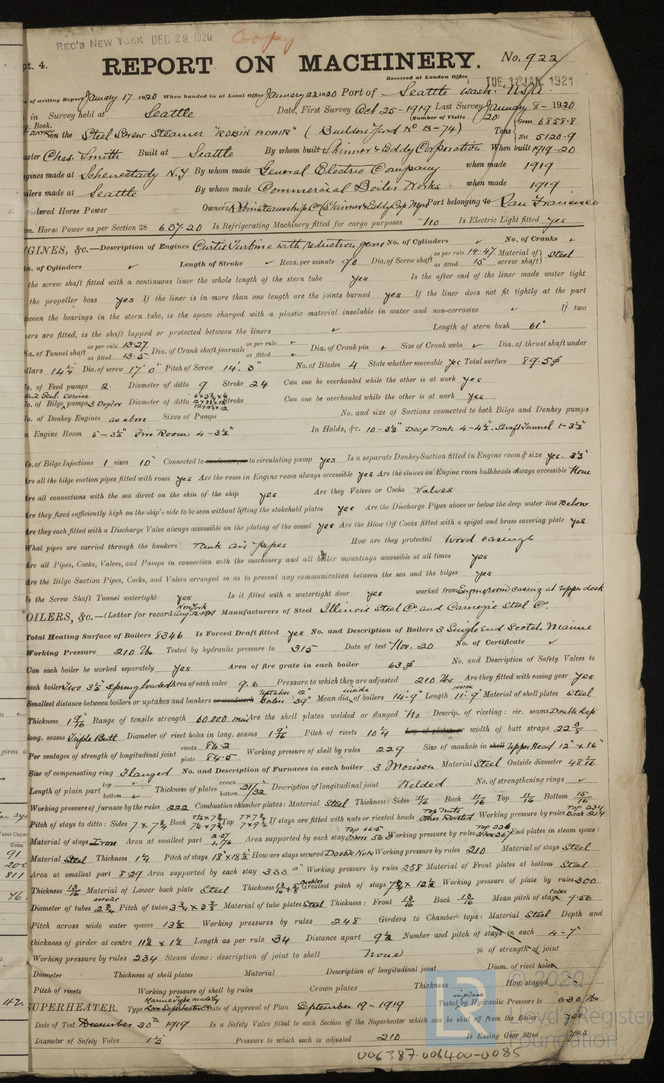 REC'D NEW YORK DEC 29. 1920
Copy
pt. 4.
REPORT ON MACHINERY.
No. 922
Received at London Office
TUE. 18 JAN. 1921
of writing Report January 17 1920 When handed in at Local Office January 22 1920 Port of Seattle Wash. U.S.A.
in Survey held at Seattle Date, First Survey Oct 25-1919 Last Survey January 8-1920
Book. (Number of Visits 20)
on the Steel Screw Steamer "ROBIN ADAIR" (Builders' Yard No B-74) Tons Gross 6858.8 Net 5120.9
Master Chas Smith Built at Seattle By whom built Skinner & Eddy Corporation When built 1919-20
Engines made at Schenectady N.Y By whom made General Electric Company when made 1919
Boilers made at Seattle By whom made Commercial Boiler Works when made 1919
Registered Horse Power Owners Port belonging to San Francisco
Horse Power as per Section 28 637.20 Is Refrigerating Machinery fitted for cargo purposes No Is Electric Light fitted yes
ENGINES, &c.—Description of Engines Curtis Turbine with Reduction gear No. of Cylinders ✓ No. of Cranks ✓
Dia. of Cylinders ✓ Length of Stroke ✓ Revs. per minute 90 Dia. of Screw shaft as per rule 14.47 as fitted 15 Material of screw shaft Steel
the screw shaft fitted with a continuous liner the whole length of the stern tube yes Is the after end of the liner made water tight
the propeller boss yes If the liner is in more than one length are the joints burned yes If the liner does not fit tightly at the part
between the bearings in the stern tube, is the space charged with a plastic material insoluble in water and non-corrosive ✓ If two
liners are fitted, is the shaft lapped or protected between the liners ✓ Length of stern bush 61"
Dia. of Tunnel shaft as per rule 13.27 as fitted 13.5 Dia. of Crank shaft journals as per rule ✓ as fitted ✓ Dia. of Crank pin ✓ Size of Crank webs ✓ Dia. of thrust shaft under
collars 14 1/2 Dia. of screw 17' 0" Pitch of Screw 14' 3" No. of Blades 4 State whether moveable yes Total surface 89.5
No. of Feed pumps 2 Diameter of ditto 9 Stroke 24 Can one be overhauled while the other is at work yes
No. of Bilge pumps 3 Duplex Diameter of ditto Stroke Can one be overhauled while the other is at work yes
No. of Donkey Engines as above Sizes of Pumps No. and size of Suctions connected to both Bilge and Donkey pumps
In Engine Room 5-3½" Fire Room 4-3½" In Holds, &c. 10-3½" Deep Tank 4-4½" Shaft Tunnel 1-3½"
No. of Bilge Injections 1 sizes 10" Connected to circulating pump yes Is a separate Donkey Suction fitted in Engine room & size yes 3½"
Are all the bilge suction pipes fitted with roses yes Are the roses in Engine room always accessible yes Are the sluices on Engine room bulkheads always accessible None
Are all connections with the sea direct on the skin of the ship yes Are they Valves or Cocks Valves
Are they fixed sufficiently high on the ship's side to be seen without lifting the stokehold plates yes Are the Discharge Pipes above or below the deep water line Below
Are they each fitted with a Discharge Valve always accessible on the plating of the vessel yes Are the Blow Off Cocks fitted with a spigot and brass covering plate yes
What pipes are carried through the bunkers Tank air pipes How are they protected Wood casings
Are all Pipes, Cocks, Valves, and Pumps in connection with the machinery and all boiler mountings accessible at all times yes
Are the Bilge Suction Pipes, Cocks, and Valves arranged so as to prevent any communication between the sea and the bilges yes
Is the Screw Shaft Tunnel watertight yes Is it fitted with a watertight door yes worked from Engine room casing at upper deck
BOILERS, &c.—(Letter for record New York Aug 12-1919) Manufacturers of Steel Illinois Steel Co. and Carnegie Steel Co.
Total Heating Surface of Boilers 8346 Is Forced Draft fitted yes No. and Description of Boilers 3 Single End Scotch Marine
Working Pressure 210 lbs Tested by hydraulic pressure to 315 Date of test Nov. 20 No. of Certificate ✓
Can each boiler be worked separately yes Area of fire grate in each boiler 63 No. and Description of Safety Valves to
each boiler Two 3½" Spring loaded Area of each valve 9.6 Pressure to which they are adjusted 210 lbs Are they fitted with easing gear yes
Smallest distance between boilers or uptakes and bunkers Uptakes 12" Boiler 39" Mean dia. of boilers inside 14'-9" Length 11'-9" Material of shell plates Steel
Thickness 1 5/16 Range of tensile strength 60,000 min Are the shell plates welded or flanged No Descrip. of riveting: cir. seams Double Lap
long. seams Triple Butt Diameter of rivet holes in long. seams Pitch of rivets 10¼ width of butt straps 22
Per centages of strength of longitudinal joint rivets 86.2 plate 84.5 Working pressure of shell by rules 229 Size of manhole in Upper Head 12"x16"
Size of compensating ring Flanged No. and Description of Furnaces in each boiler 3 Morison Material Steel Outside diameter 48
Length of plain part top bottom Thickness of plates crown bottom 21/32 Description of longitudinal joint Welded No. of strengthening rings ✓
Working pressure of furnace by the rules 222 Combustion chamber plates: Material Steel Thickness: Sides 11/16 Back 11/16 Top 11/16 Bottom 15/16
Pitch of stays to ditto: Sides 7 x 7 Back Top If stays are fitted with nuts or riveted heads Top Nuts Others Riveted Working pressure by rules
Material of stays Iron Area at smallest part Area supported by each stay Working pressure by rules End plates in steam space:
Material Steel Thickness Pitch of stays 18 x 18½ How are stays secured Double Nuts Working pressure by rules 210 Material of stays Steel
Area at smallest part 8.29 Area supported by each stay 333 Working pressure by rules 258 Material of Front plates at bottom Steel
Thickness 13/16 Material of Lower back plate Steel Thickness Greatest pitch of stays Working pressure of plate by rules 300
Diameter of tubes Pitch of tubes Material of tube plates Steel Thickness: Front 13/16 Back 13/16 Mean pitch of stays 7.50
Pitch across wide water spaces 13½ Working pressures by rules 248 Girders to Chamber tops: Material Steel Depth and
thickness of girder at centre Length as per rule 34 Distance apart 9½ Number and pitch of stays in each 4-7"
Working pressure by rules 234 Steam dome: description of joint to shell None % of strength of joint
Diameter Thickness of shell plates Material Description of longitudinal joint Diam. of rivet holes
Pitch of rivets Working pressure of shell by rules Crown plates Thickness How stayed
SUPERHEATER. Type Date of Approval of Plan September 19-1919 Tested by Hydraulic Pressure to 630 lbs
Date of Test December 30th 1919 Is a Safety Valve fitted to each Section of the Superheater which can be shut off from the Boiler yes
Diameter of Safety Valve 1½ Pressure to which each is adjusted 210 Is Easing Gear fitted yes
© 2020
Lloyd's Register
Foundation
006387-006400-0085